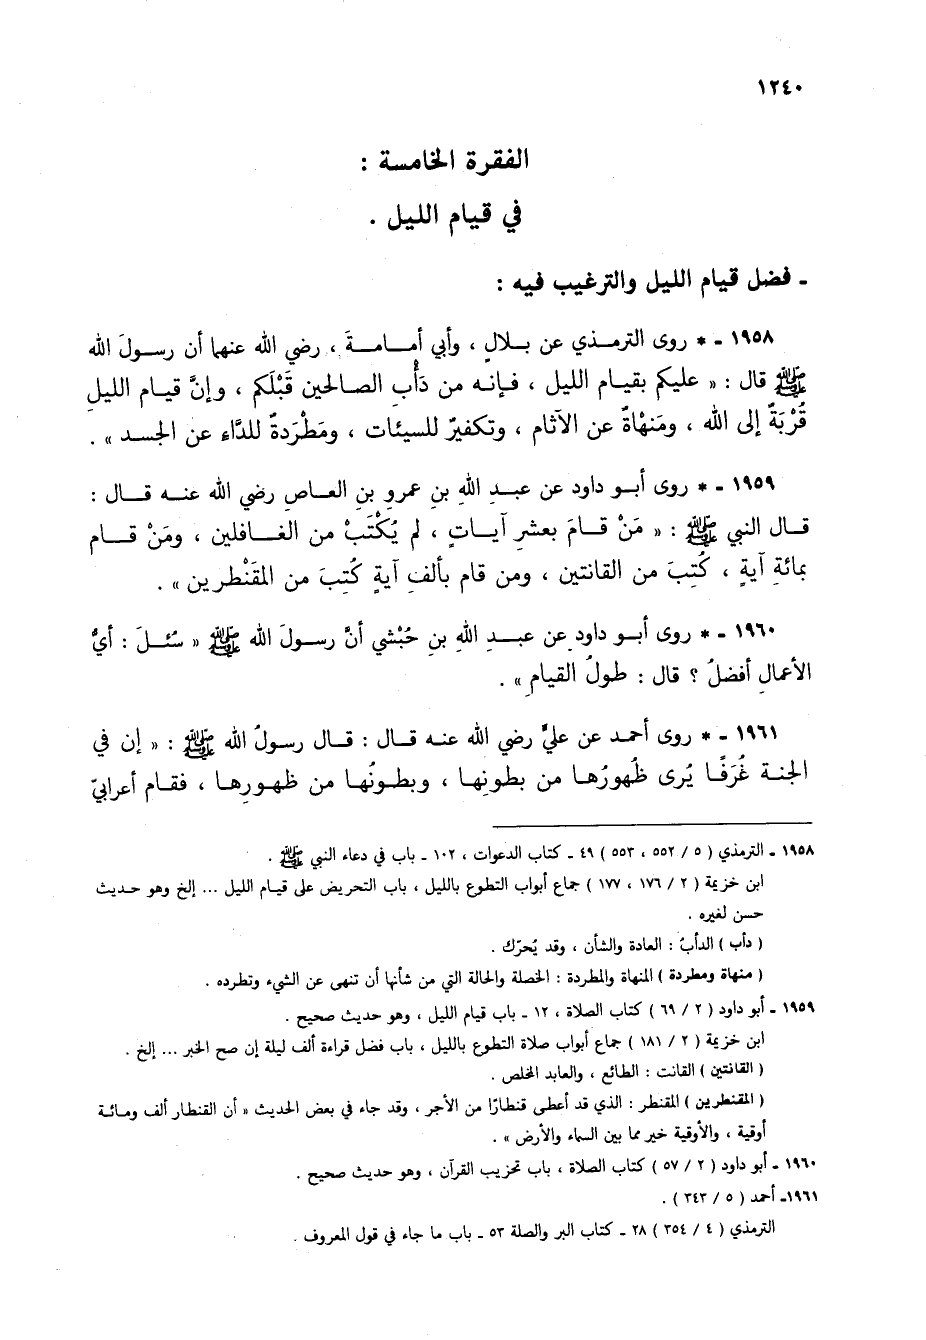 ١٢٤٠
الفقرة الخامسة :
في قيام الليل .
ـ فضل قيام الليل والترغيب فيه :
١٩٥٨ ـ * روى الترمذي عن بلالٍ ، وأبي أمامةَ ، رضي الله عنهما أن رسولَ الله
ﷺ قال : « عليكم بقيام الليل ، فإنه من دَأْبِ الصالحين قَبْلَكم ، وإنَّ قيام الليلِ
قُرْبَةٌ إلى الله ، ومَنهْاةٌ عن الآثام ، وتكفيرٌ للسيئات ، ومَطْرَدةٌ للدَّاء عن الجسد » .
١٩٥٩ ـ * روى أبو داود عن عبدِ اللهِ بنِ عمروِ بنِ العاصِ رضي الله عنه قال :
قال النبي ﷺ : « مَنْ قامَ بعشرِ آياتٍ ، لم يُكْتَبْ من الغافلين ، ومَنْ قام
بمائةِ آيةٍ ، كُتِبَ من القانتين ، ومن قام بألفِ آيةٍ كُتِبَ من المقَنْطرِين » .
١٩٦٠ ـ * روى أبو داود عن عبدِ اللهِ بنِ حُبْشي أنَّ رسولَ الله ﷺ « سُئلَ : أيُّ
الأعمالِ أفضلُ ؟ قال : طولُ القيامِ » .
١٩٦١ ـ * روى أحمد عن عليٍّ رضي الله عنه قال : قال رسولُ الله ﷺ : « إن في
الجنة غُرَفًا يُرى ظُهورُها من بطونِها ، وبطونُها من ظهورِها ، فقام أعرابيّ
١٩٥٨ ـ الترمذي ( ٥ / ٥٥٢ ، ٥٥٣ ) ٤٩ ـ كتاب الدعوات ، ١٠٢ ـ باب في دعاء النبي ﷺ .
ابن خزيمة ( ٢ / ١٧٦ ، ١٧٧ ) جماع أبواب التطوع بالليل ، باب التحريض على قيام الليل ... إلخ وهو حديث
حسن لغيره .
( دأب ) الدأبُ : العادة والشأن ، وقد يُحرّك .
( منهاة ومطردة ) المنهاة والمطردة : الخصلة والحالة التي من شأنها أن تنهى عن الشيء وتطرده .
١٩٥٩ ـ أبو داود ( ٢ / ٦٩ ) كتاب الصلاة ، ١٢ ـ باب قيام الليل ، وهو حديث صحيح .
ابن خزيمة ( ٢ / ١٨١ ) جماع أبواب صلاة التطوع بالليل ، باب فضل قراءة ألف ليلة إن صح الخبر ... إلخ .
( القانتين ) القانت : الطائع ، والعابد المخلص .
( المقنطرين ) المقنطر : الذي قد أعطى قنطارًا من الأجر ، وقد جاء في بعض الحديث « أن القنطار ألف ومائة
أوقية ، والأوقية خير مما بين السماء والأرض » .
١٩٦٠ ـ أبو داود ( ٢ / ٥٧ ) كتاب الصلاة ، باب تحزيب القرآن ، وهو حديث صحيح .
١٩٦١ـ أحمد ( ٥ / ٣٤٣ ) .
الترمذي ( ٤ / ٣٥٤ ) ٢٨ ـ كتاب البر والصلة ٥٣ ـ باب ما جاء في قول المعروف .